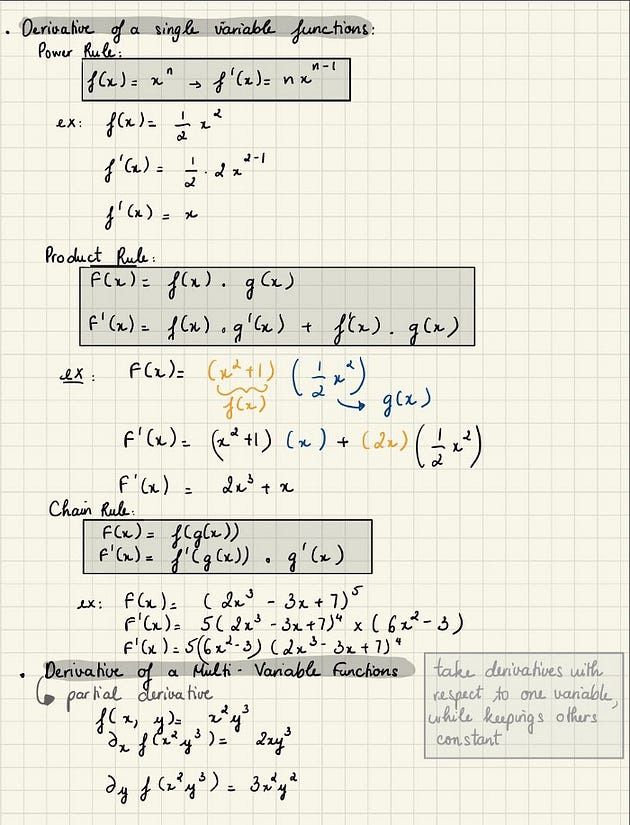 . Derivative of a single variable functions:
Power Rule:
f(x) = xⁿ → f'(x) = n xⁿ⁻¹
ex: f(x) = 1/2 x²
f'(x) = 1/2 . 2 x²⁻¹
f'(x) = x
Product Rule:
F(x) = f(x) . g(x)
F'(x) = f(x) . g'(x) + f'(x) . g(x)
ex: F(x) = (x² + 1) (1/2 x²)
f(x) → g(x)
F'(x) = (x² + 1) (x) + (2x) (1/2 x²)
F'(x) = 2x³ + x
Chain Rule:
F(x) = f(g(x))
F'(x) = f'(g(x)) . g'(x)
ex: F(x) = (2x³ - 3x + 7)⁵
F'(x) = 5(2x³ - 3x + 7)⁴ x (6x² - 3)
F'(x) = 5(6x² - 3) (2x³ - 3x + 7)⁴
. Derivative of a Multi-Variable Functions
partial derivative
f(x, y) = x²y³
∂x f(x²y³) = 2xy³
∂y f(x²y³) = 3x²y²
take derivatives with
respect to one variable,
while keepings others
constant